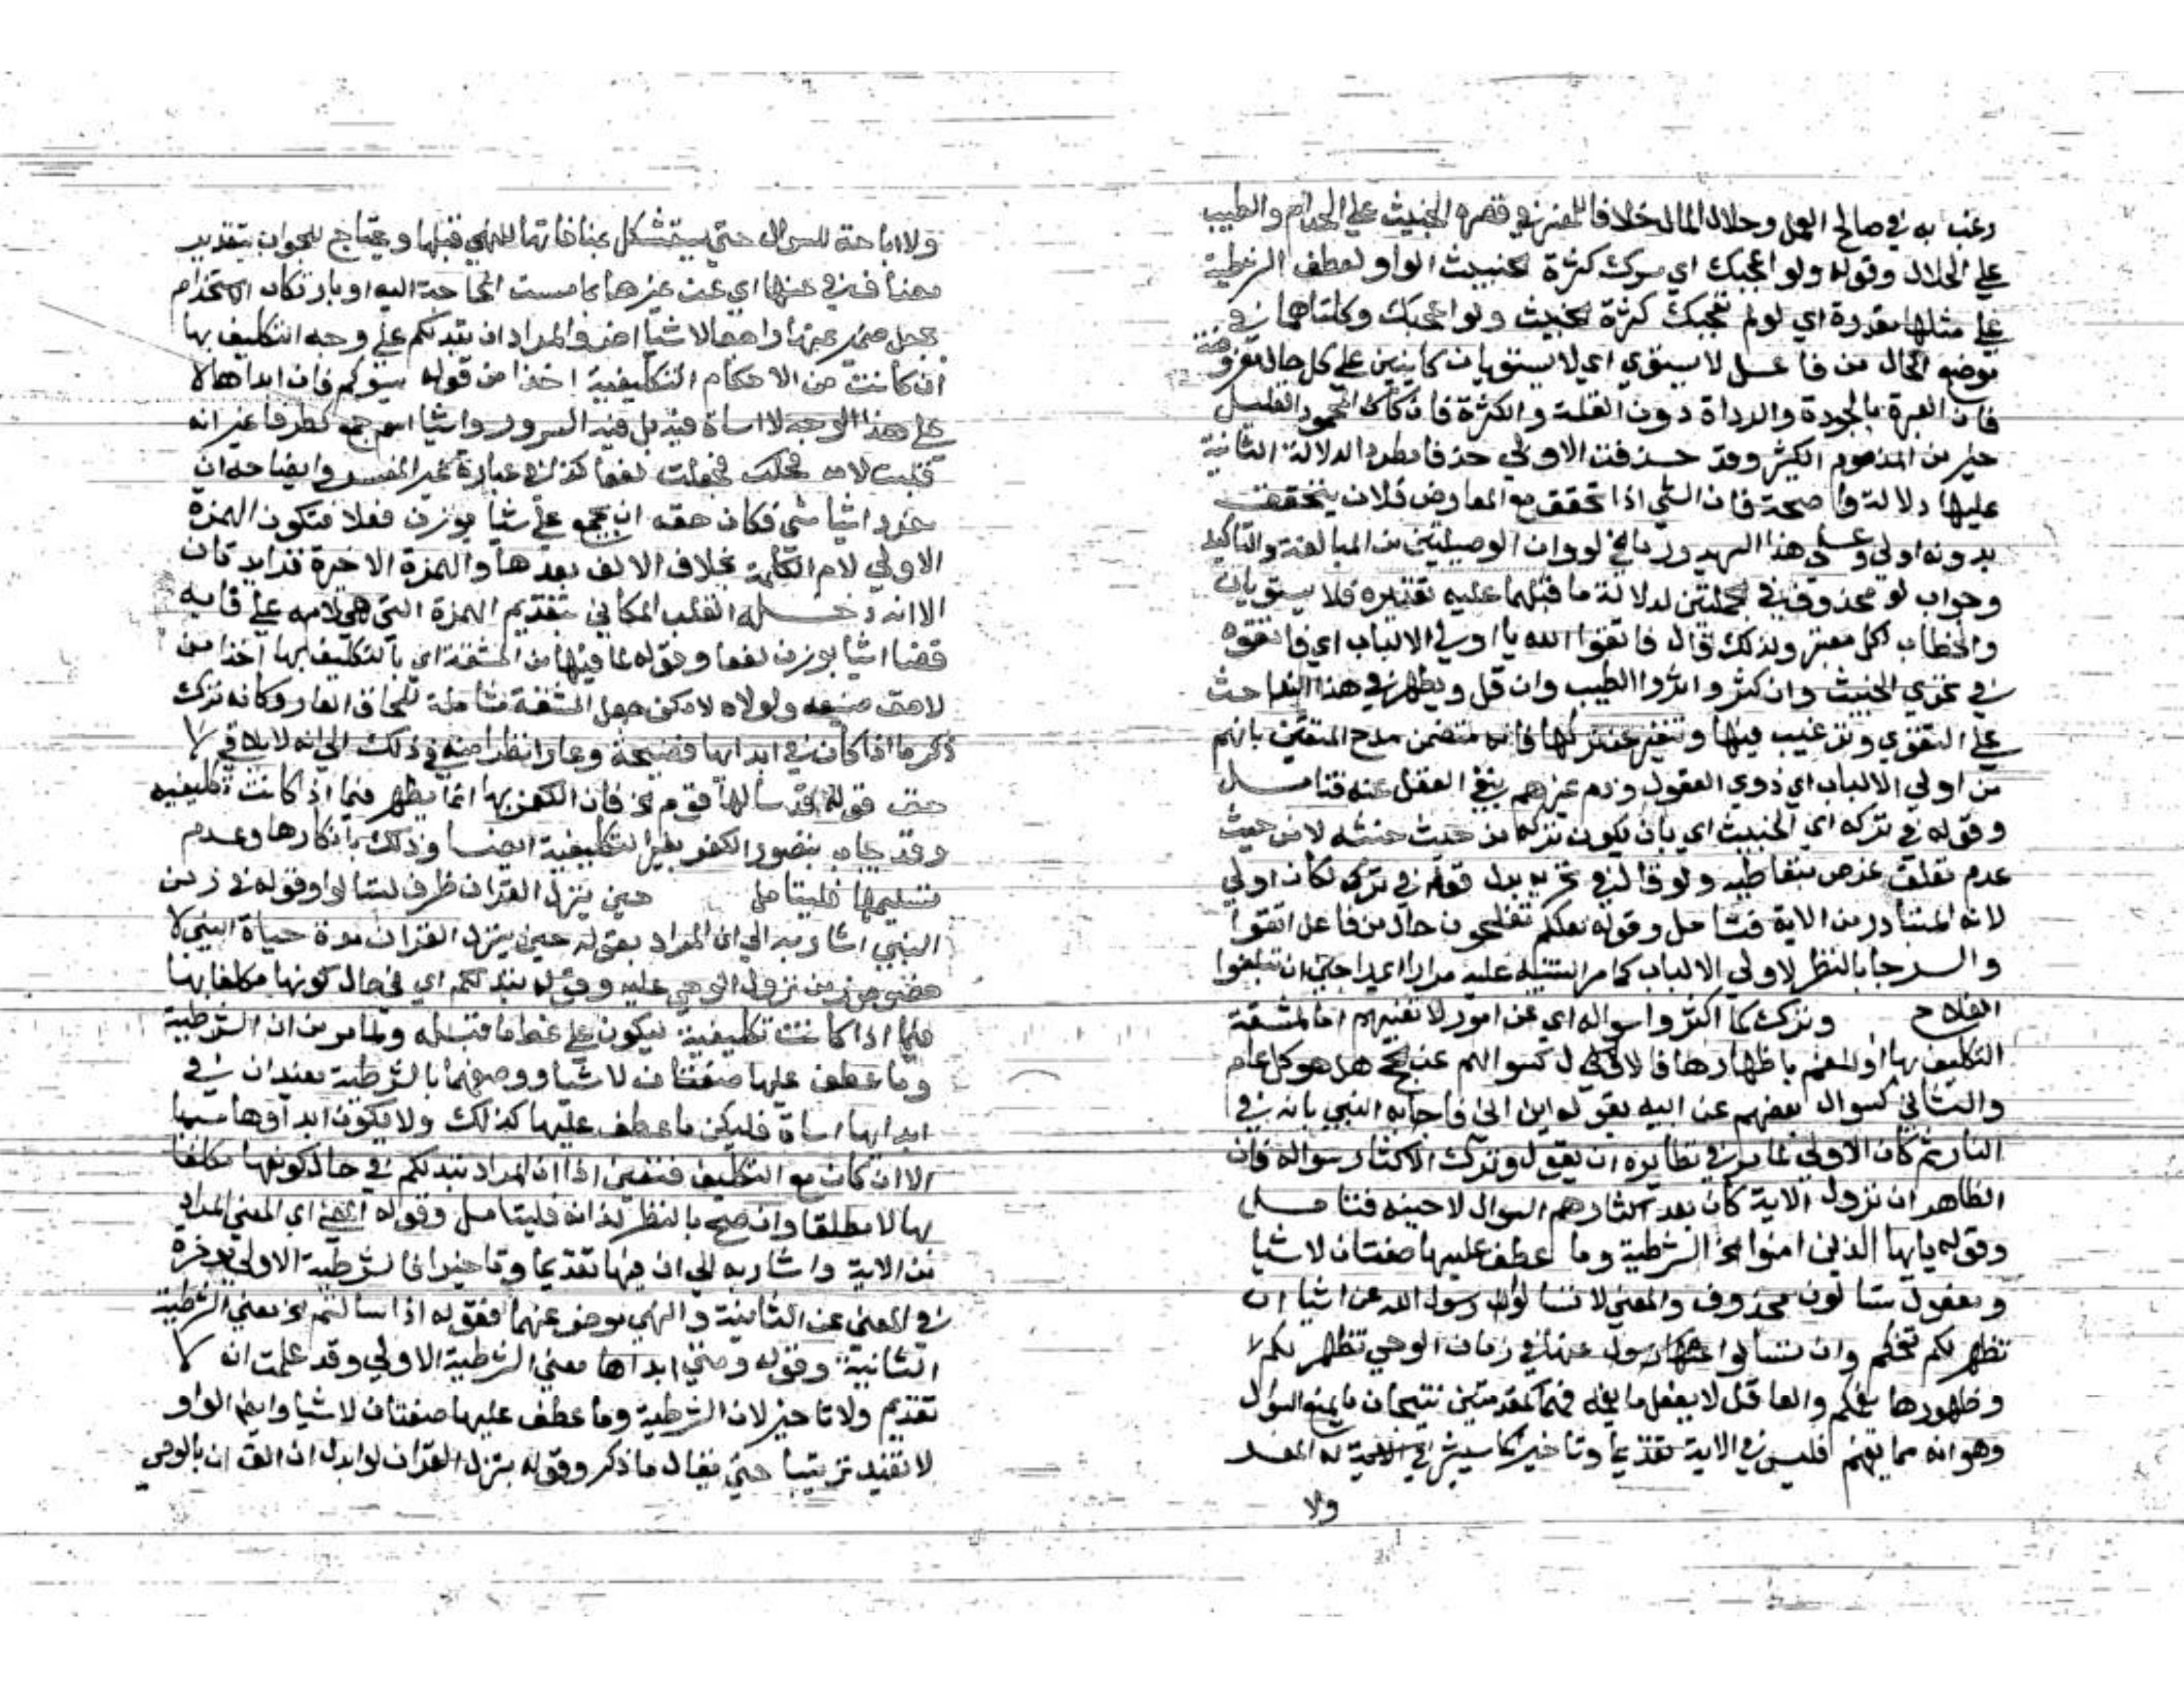 رغب به في صالح العمل وحلال المال خلافا للمفسر في قصره الخبيث على الحرام والطيب
على الحلال وقوله ولو اعجبك اي سرك كثرة الخبيث الواو لعطف الشرطية
على مثلها مقدرة اي لو لم تعجبك كثرة الخبيث ولو اعجبك وكلتاهما في
موضع الحال من فاعل لا يستوي اي لا يستويان كاينين على كل حال مفروضة
فان العبرة بالجودة والرداة دون القلة والكثرة فان كان المحمود القليل
خير من المذموم الكثير وقد حذفت الاولى حذفا مطردا لدلالة الثانية
عليها دلالة واضحة فان الشي اذا تحقق مع المعارض فلان يتحقق
بدونه اولى وعلى هذا السر يدور ما في لو وان الوصليتين من المبالغة والتاكيد
وجواب لو محذوف في الجملتين لدلالة ما قبلهما عليه تقديره فلا يستويان
والخطاب لكل معتبر ولذلك قال فاتقوا الله يا اولي الالباب اي فاتقوه
في تحري الخبيث وان كثر واثروا الطيب وان قل ويظهر في هذا انها حث
على التقوى وترغيب فيها وتنفير عن تركها فانه متضمن مدح المتقين بانهم
من اولي الالباب اي ذوي العقول وذم غيرهم بنفي العقل عنه فتامل
وقوله في تركه اي الخبيث اي بان يكون تركه من حيث خبثه لا من حيث
عدم تعلق غرض بتعاطيه ولو قال في تحريه بدل قوله في تركه لكان اولى
لانه المتبادر من الاية فتامل وقوله لعلكم تفلحون حال من فاعل اتقوا
والرجا بالنظر لاولي الالباب كما مر التنبيه عليه مرارا اي راجين ان تبلغوا
الفلاح ونزلت لما اكثروا سواله اي عن امور لا تعنيهم اما لمشقة
التكليف بها او لغمهم باظهارها فالاول كسوالهم عن الحج هل هو كل عام
والثاني كسوال بعضهم عن ابيه بقوله اين ابي فاجابه النبي بانه في
النار ثم كان الاولى لما مر في نظايره ان يقول ونزلت لاكثار سواله فان
الظاهر ان نزول الاية كان بعد اكثارهم السوال لا حينه فتامل
وقوله يايها الذين امنوا الخ الشرطية وما عطف عليها صفتان لاشيا
ومفعول تسالون محذوف والمعنى لا تسالوا رسول الله عن اشيا ان
تظهر لكم تغمكم وان تسالوا عنها في زمان الوحي تظهر لكم
وظهورها يغمكم والعاقل لا يفعل ما يغمه فهما كمقدمتين ينتجان ما يمنع السوال
وهو انه مما يغمهم فليس في الاية تقديما وتاخيرا كما سيشير اليه المفسر
ولا
ولا اباحة للسوال حتى يستشكل بمنافاتها للنهي قبلها ويحتاج للجواب بتقدير
مضاف في عنها اي عن غيرها مما مست الحاجة اليه او بارتكاب الاستخدام
بجعل ضمير عنها راجعا لاشيا اخر والمراد ان تبد لكم على وجه التكليف بها
ان كانت من الاحكام التكليفية اخذا من قوله تسوكم فان ابداها لا
على هذا الوجه لا اساة فيه بل فيه السرور واشيا اسم جمع كطرفا غير انه
قلبت لامه فجعلت لفعا كذا في عبارة غير المفسر وايضاحه ان
مفرد اشيا شي فكان حقه ان يجمع على شيا بوزن فعلا فتكون الهمزة
الاولى لام الكلمة بخلاف الالف بعدها والهمزة الاخيرة فزايدتان
الا انه دخله القلب المكاني بتقديم الهمزة التي هي لامه على فايه
فصار اشيا بوزن لفعا وقوله لما فيها من المشقة اي بالتكليف بها اخذا من
لاحق صنيعه ولولاه لامكن جعل المشقة شاملة للحاق العار وكانه ترك
ذكر ما اذا كان في ابدايها فضيحة وعار انظرا منه في ذلك الى انه لا يلاقي
حق قوله قد سالها قوم الخ فان الكفر بها انما يظهر فيما اذا كانت تكليفية
وقد يجاب بتصور الكفر بغير التكليفية ايضا وذلك بانكارها وعدم
تسليمها فليتامل حين ينزل القران ظرف لتسالوا وقوله في زمن
النبي اشار به الى ان المراد بقوله حين ينزل القران مدة حياة النبي لا
خصوص زمن نزول الوحي عليه وقوله تبد لكم اي في حال كونها مكلفا بها
فيما اذا كانت تكليفية ليكون على نمط ما قبله ولما مر من ان الشرطية
وما عطف عليها صفتان لاشيا ووصفها بالشرطية يفيد ان في
ابدايها اساة فليكن ما عطف عليها كذلك ولا يكون ابداوها مسيا
الا ان كان مع التكليف فتعين اذا ان المراد تبد لكم في حال كونها مكلفا
بها لا مطلقا وان صح بالنظر لذاته فليتامل وقوله المعنى اي المعنى المراد
من الاية واشار به الى ان فيها تقديما وتاخيرا فالشرطية الاولى موخرة
في المعنى عن الثانية والنهي موخر عنهما فقوله اذا سالتم الخ معنى الشرطية
الثانية وقوله ومتى ابداها معنى الشرطية الاولى وقد علمت ان لا
تقديم ولا تاخير لان الشرطية وما عطف عليها صفتان لاشيا وايضا الواو
لا تفيد ترتيبا حتى يقال ما ذكر وقوله ينزل القران لو ابدل القران بالوحي